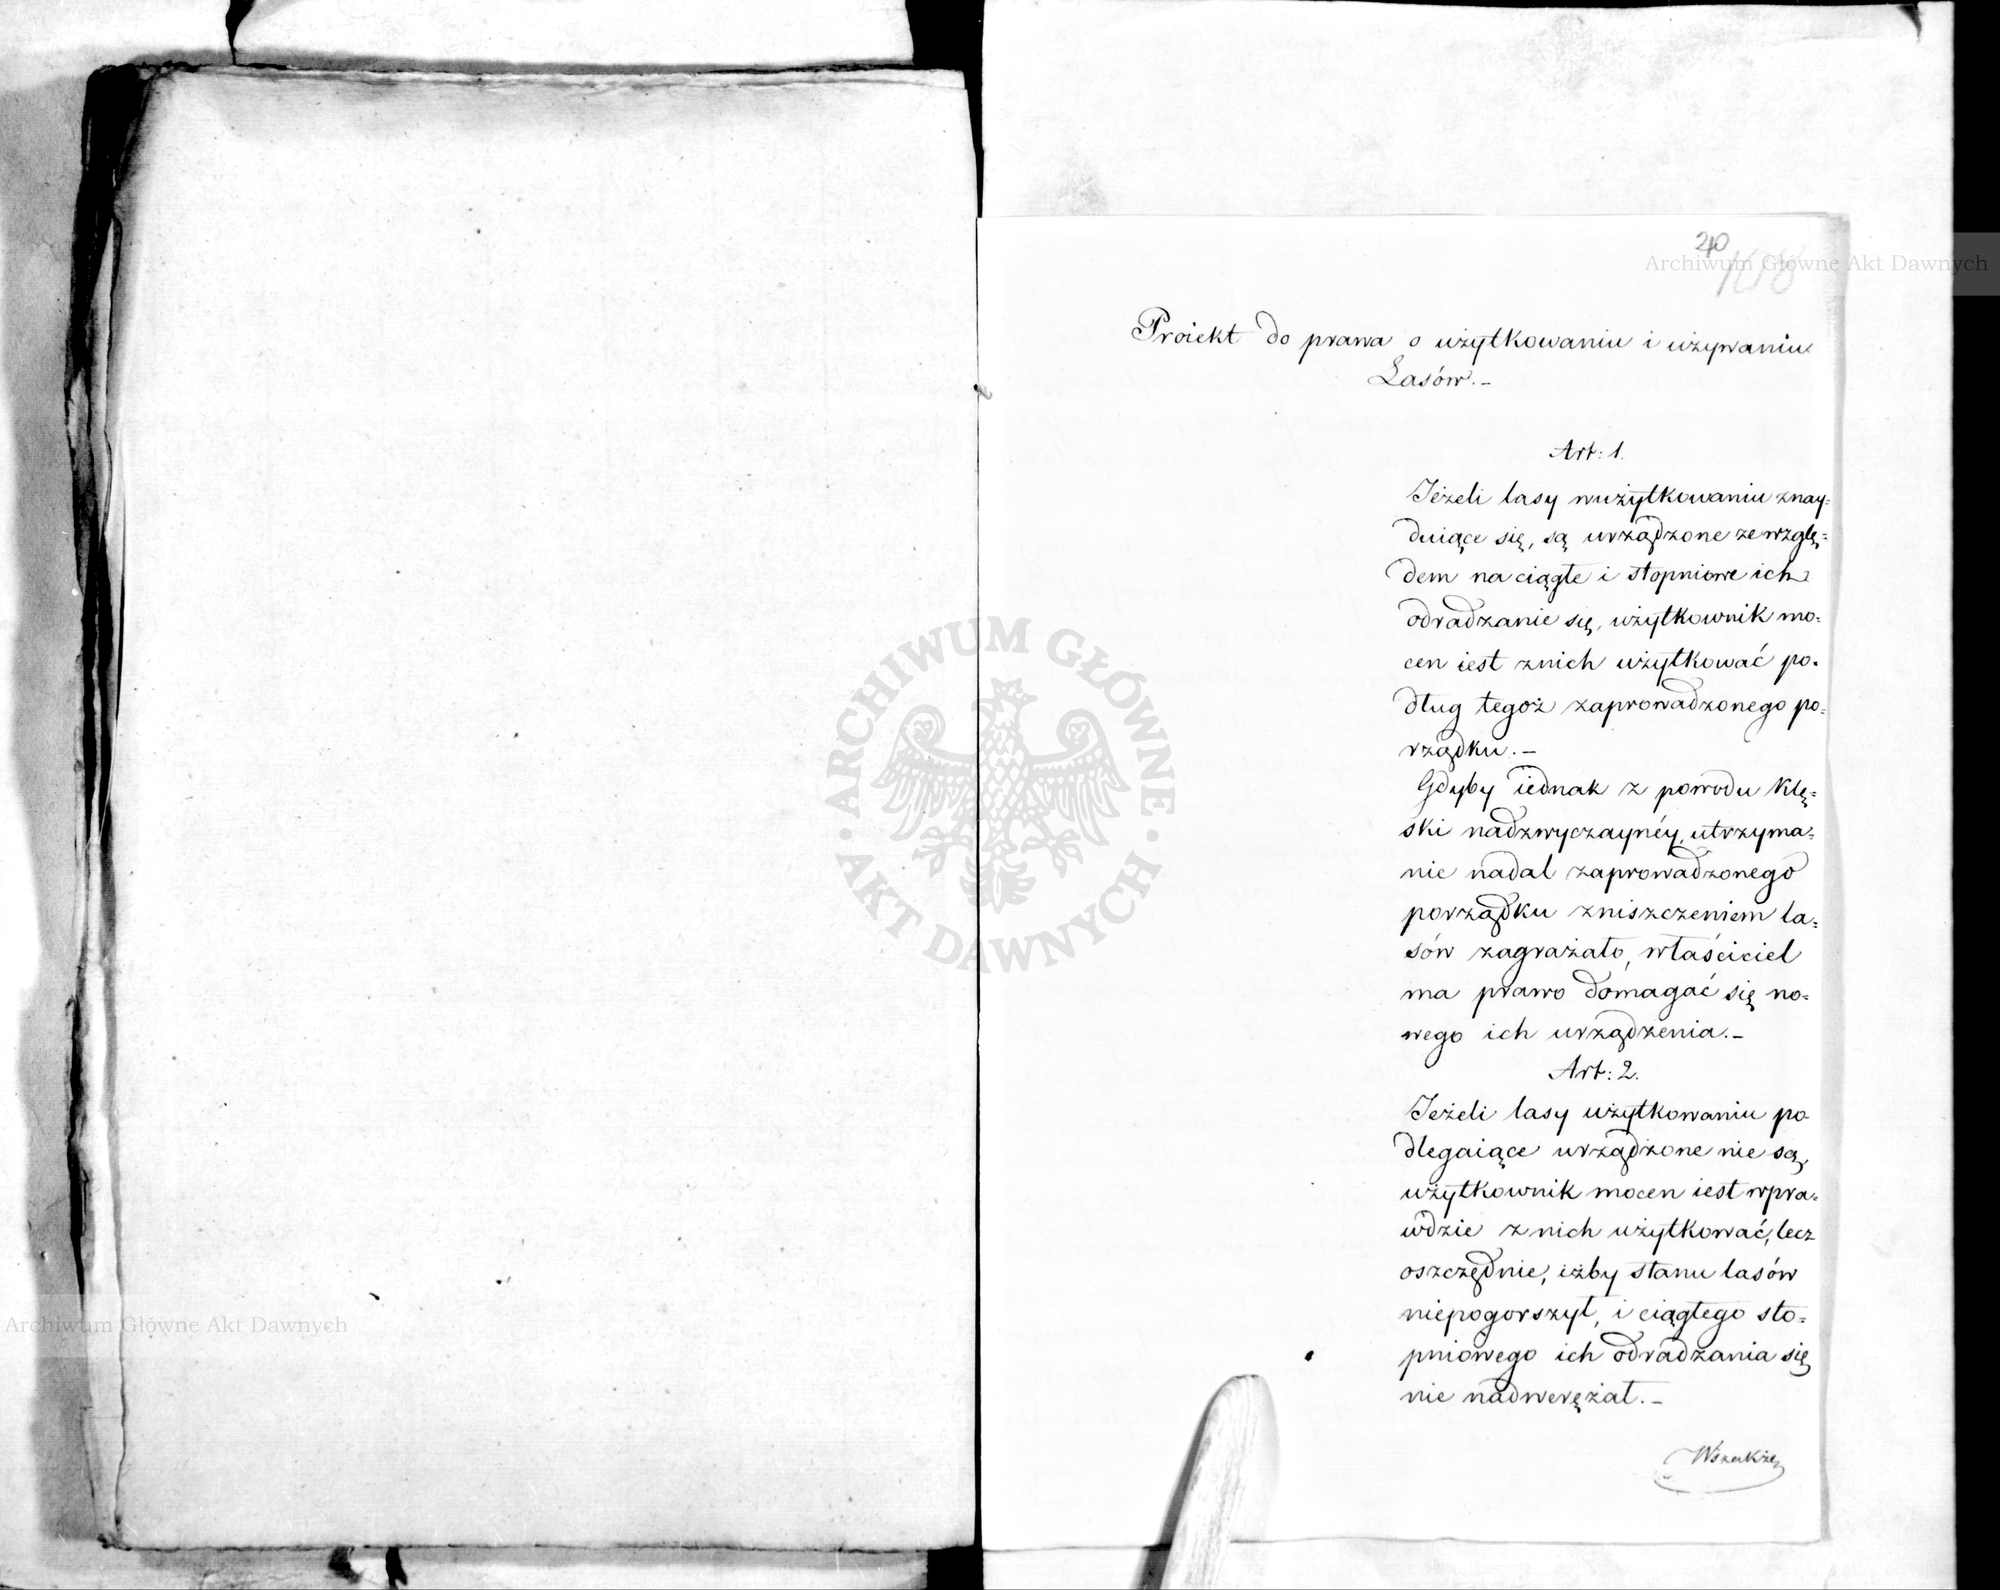 210
Archiwum Główne Akt Dawnych
Proiekt do prawa o użytkowaniu i używaniu
Lasów.–
Art: 1.
Jeżeli lasy wużytkowaniu znay=
duiące się, są urządzone ze wzglę=
dem na ciągłe i stopniowe ich
odradzanie się, użytkownik mo=
cen iest znich użytkować po=
dług tegoż zaprowadzonego po=
rządku.–
Gdyby iednak z powodu klę=
ski nadzwyczaynéy, utrzyma=
nie nadal zaprowadzonego
porządku zniszczeniem la=
sów zagrażało, właściciel
ma prawo domagać się no=
wego ich urządzenia.–
Art: 2.
Jeżeli lasy użytkowaniu po
dlegaiące urządzone nie są,
użytkownik mocen iest wpra=
wdzie z nich użytkować, lecz
oszczędnie, iżby stanu lasów
niepogorszył, i ciągłego sto=
pniowego ich odradzania się
nie nadwerężał.–
Wszakże
ARCHIWUM GŁÓWNE
AKT DAWNYCH
Archiwum Główne Akt Dawnych